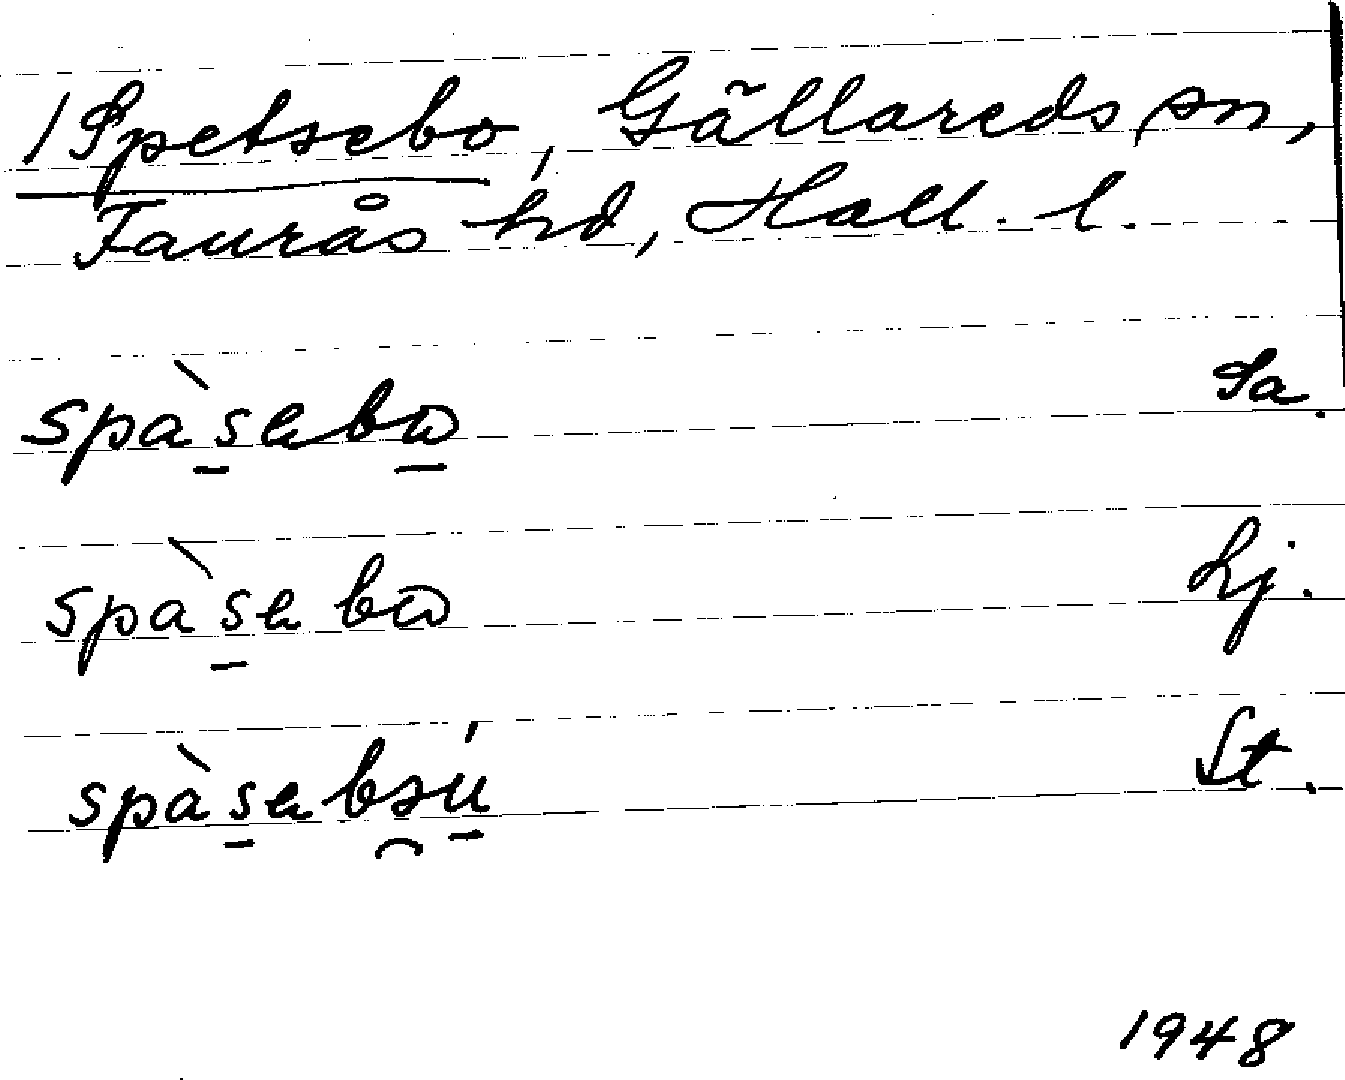 1 Spetsebo, Gällareds sn,
Faurås hd, Hall. l.
spàsebω Sa.
spàsebω Lj.
spàsebsú St.
1948